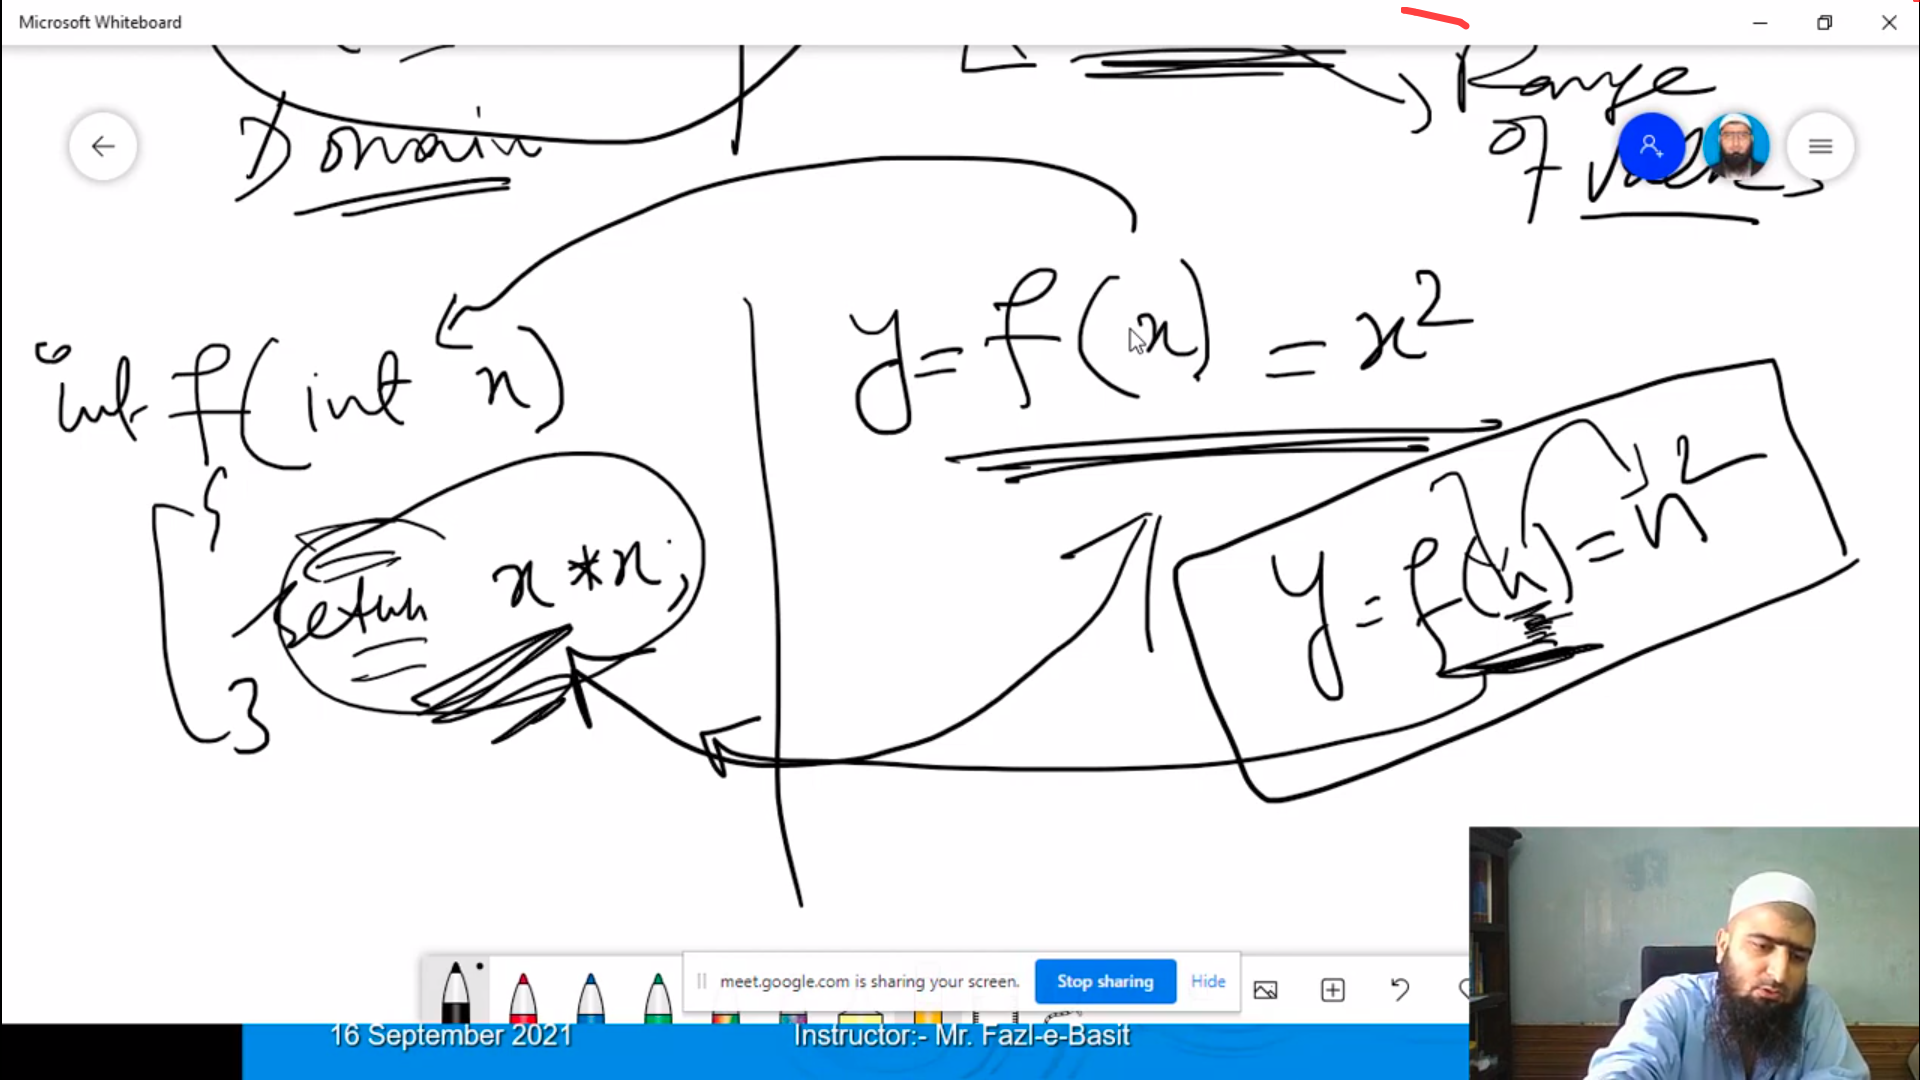 Microsoft Whiteboard
Range
Domain
of values
y = f(x) = x²
int f(int x)
{
return x * x;
}
y = f(n) = n²
meet.google.com is sharing your screen. Stop sharing Hide
16 September 2021 Instructor:- Mr. Fazl-e-Basit